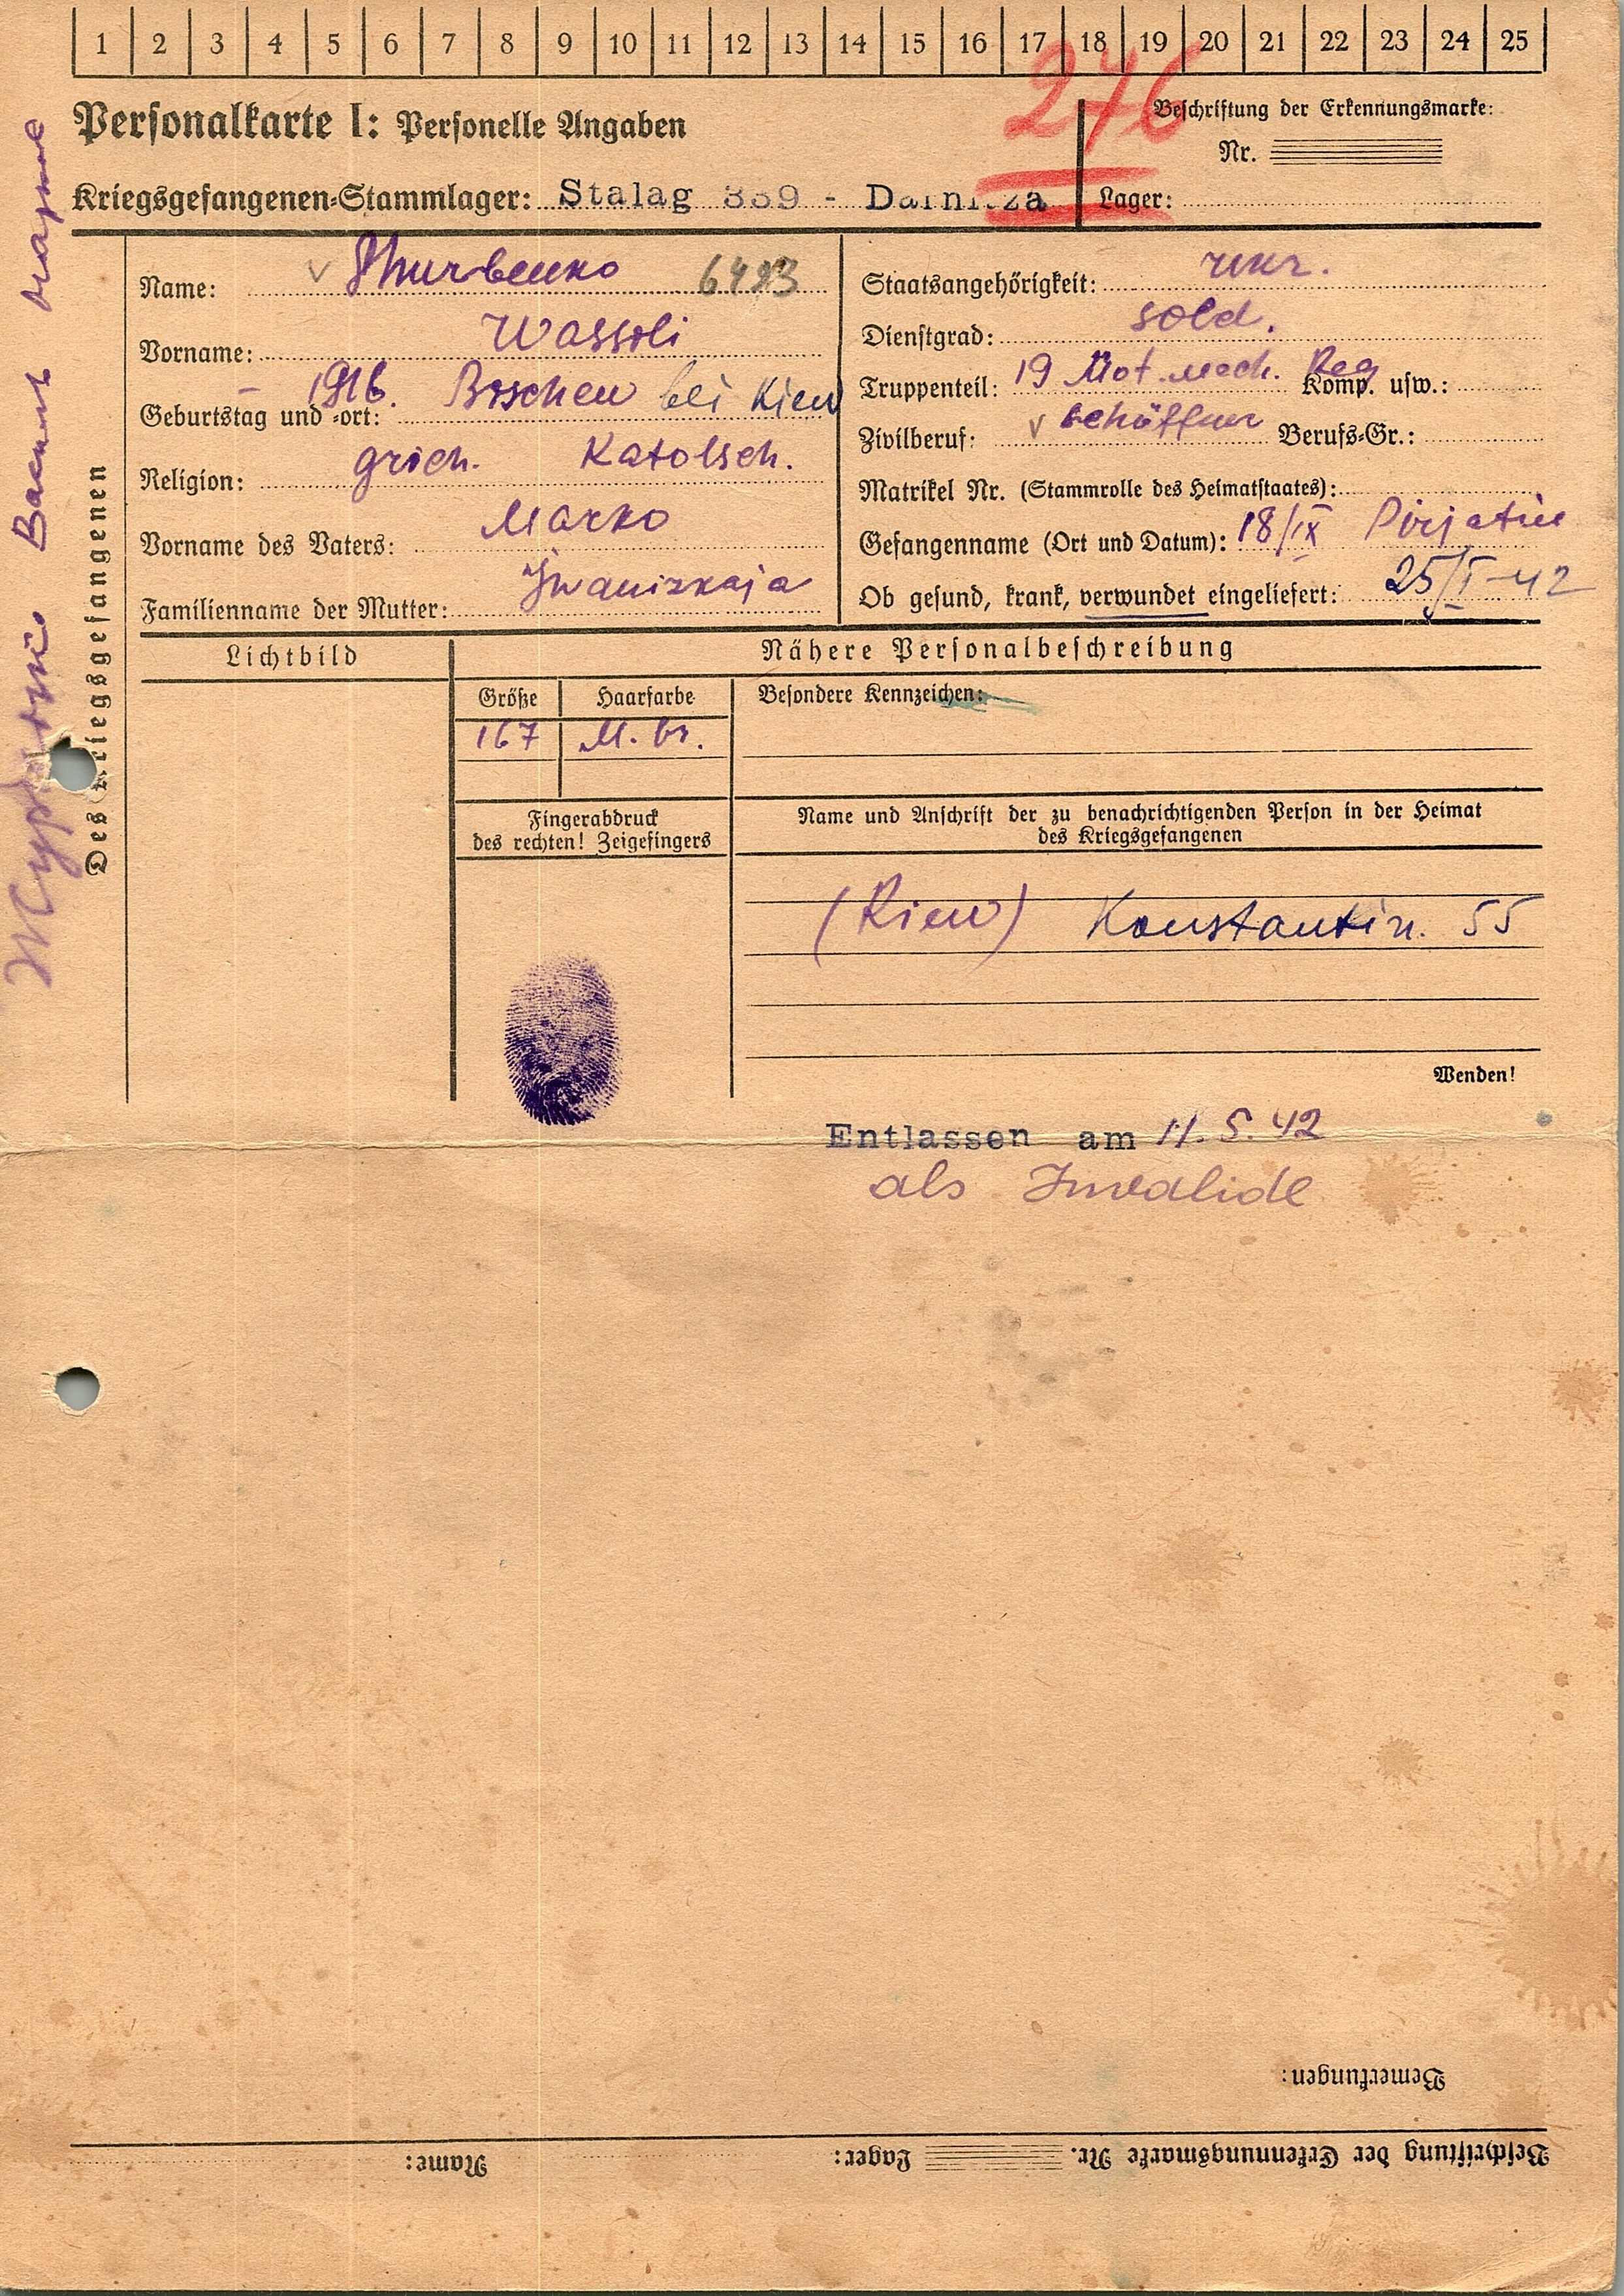 1 2 3 4 5 6 7 8 9 10 11 12 13 14 15 16 17 18 19 20 21 22 23 24 25
276
Personalkarte I: Personelle Angaben
Beschriftung der Erkennungsmarke:
Nr.
Kriegsgefangenen-Stammlager: Stalag 339 - Darnitza
Lager:
Des Kriegsgefangenen
Name: Shurbenko
Vorname: Wassili
Geburtstag und -ort: 1916. bei Kiew
Religion: grich. Katolsch.
Vorname des Vaters: Marko
Familienname der Mutter: Iwanizkaja
Staatsangehörigkeit: ukr.
Dienstgrad: sold.
Truppenteil: 19 Mot. mech. Reg Komp. usw.:
Zivilberuf: v schöffner Berufs-Gr.:
Matrikel Nr. (Stammrolle des Heimatstaates):
Gefangenname (Ort und Datum): 18/IX Pirjatin
Ob gesund, krank, verwundet eingeliefert: 25/I-42
Lichtbild
Nähere Personalbeschreibung
Größe Haarfarbe Besondere Kennzeichen:
167 M. br.
Fingerabdruck
des rechten! Zeigefingers
Name und Anschrift der zu benachrichtigenden Person in der Heimat
des Kriegsgefangenen
(Kiew) Konstantin. 55
Wenden!
Entlassen am 11.5.42
als Invalide
Bemerkungen:
Beschriftung der Erkennungsmarke Nr. Lager: Name: